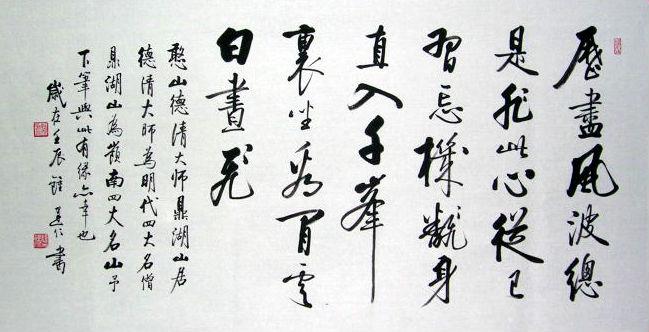 歷盡風波總
是非此心從已
習忘機翻身
直入千峯
裏坐看閒雲
白晝飛
憨山德清大師鼎湖山居
德清大師為明代四大名僧
鼎湖山為嶺南四大名山予
下筆與此有緣亦幸也
歲在壬辰 書